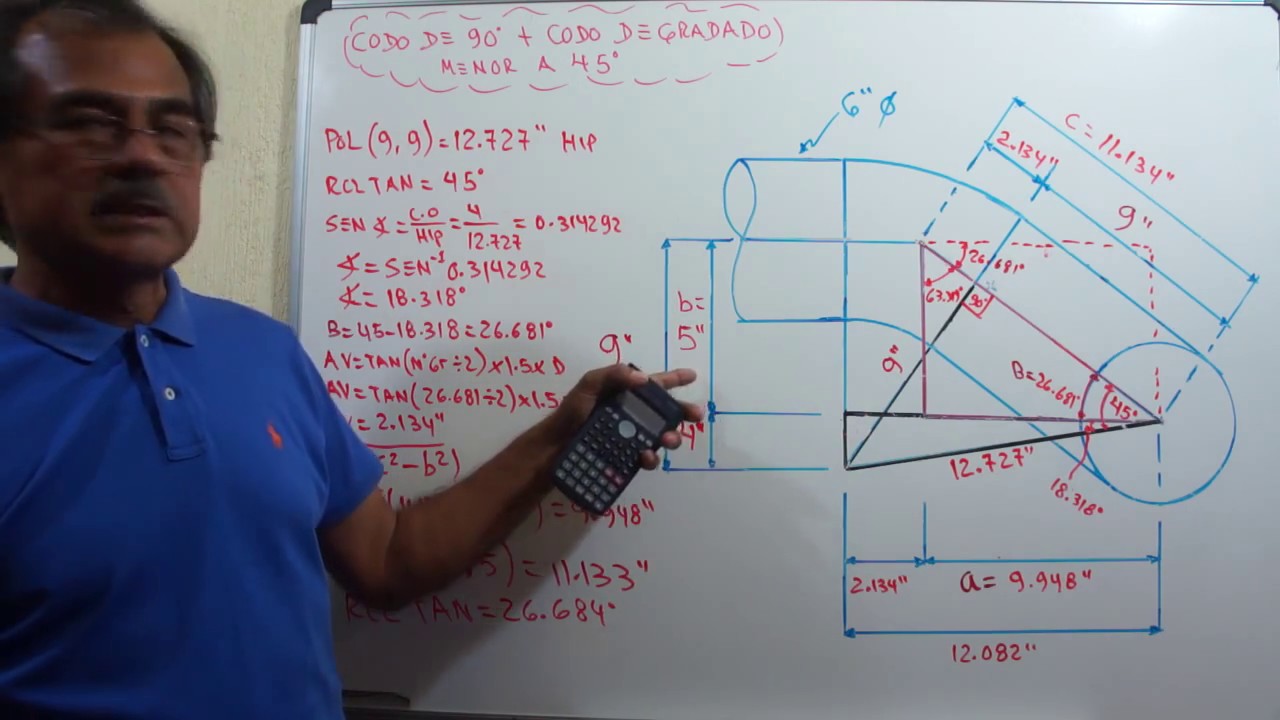 CODO DE 90° + CODO DEGRADADO
MENOR A 45°
POL (9, 9) = 12.727" HIP
RCL TAN = 45°
SEN ∡ = C.O/HIP = 4/12.727 = 0.314292
∡ = SEN⁻¹ 0.314292
∡ = 18.318°
B = 45-18.318 = 26.681°
AV = TAN (N°GR ÷ 2) x 1.5 x D
AV = TAN (26.681 ÷ 2) x 1.5
= 2.134"
- b²)
) = 9.948"
5) = 11.133"
RCL TAN = 26.684°
6" ø
C = 11.134"
2.134"
9"
26.681°
90°
9"
b =
5"
9"
4"
B = 26.681°
45°
12.727"
18.318°
2.134"
a = 9.948"
12.082"